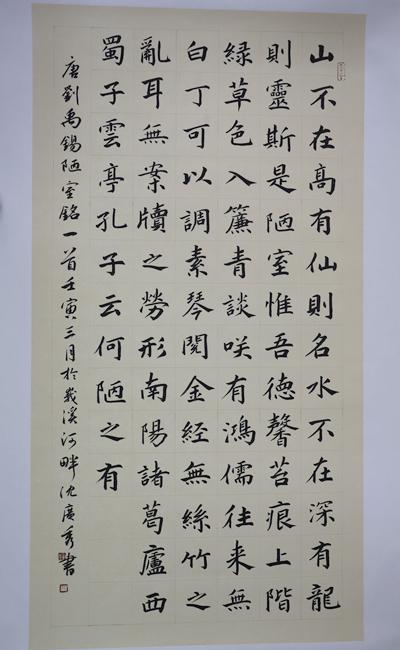 山不在髙有仙則名水不在深有龍
則靈斯是陋室惟吾德馨苔痕上階
綠草色入簾青談咲有鴻儒往来無
白丁可以調素琴閱金経無絲竹之
亂耳無案牘之勞形南陽諸葛廬西
蜀子雲亭孔子云何陋之有
唐劉禹錫陋室銘一首壬寅三月於溪河畔沈廣秀書